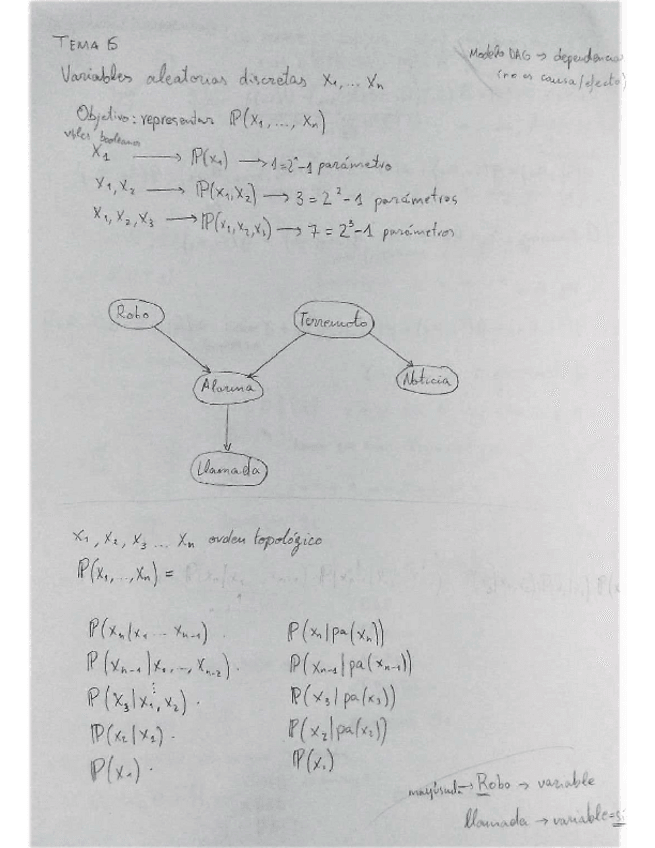 TEMA 5
Modelo DAG → dependencias
(no es causa/efecto)
Variables aleatorias discretas X1, ... Xn
Objetivo: representar P(X1, ..., Xn)
vbles booleanas
X1 → P(x1) → 1 = 2^1 - 1 parámetro
X1, X2 → P(X1, X2) → 3 = 2^2 - 1 parámetros
X1, X2, X3 → P(X1, X2, X3) → 7 = 2^3 - 1 parámetros
Robo
Terremoto
Alarma
Noticia
Llamada
X1, X2, X3 ... Xn orden topológico
P(X1, .., Xn) =
P(Xn | X1 ... Xn-1) · P(Xn | pa(Xn))
P(Xn-1 | X1, ..., Xn-2) · P(Xn-1 | pa(Xn-1))
⋮
P(X3 | X1, X2) · P(X3 | pa(X3))
P(X2 | X1) · P(X2 | pa(X2))
P(X1) · P(X1)
mayúscula → Robo → variable
llamada → variable = si